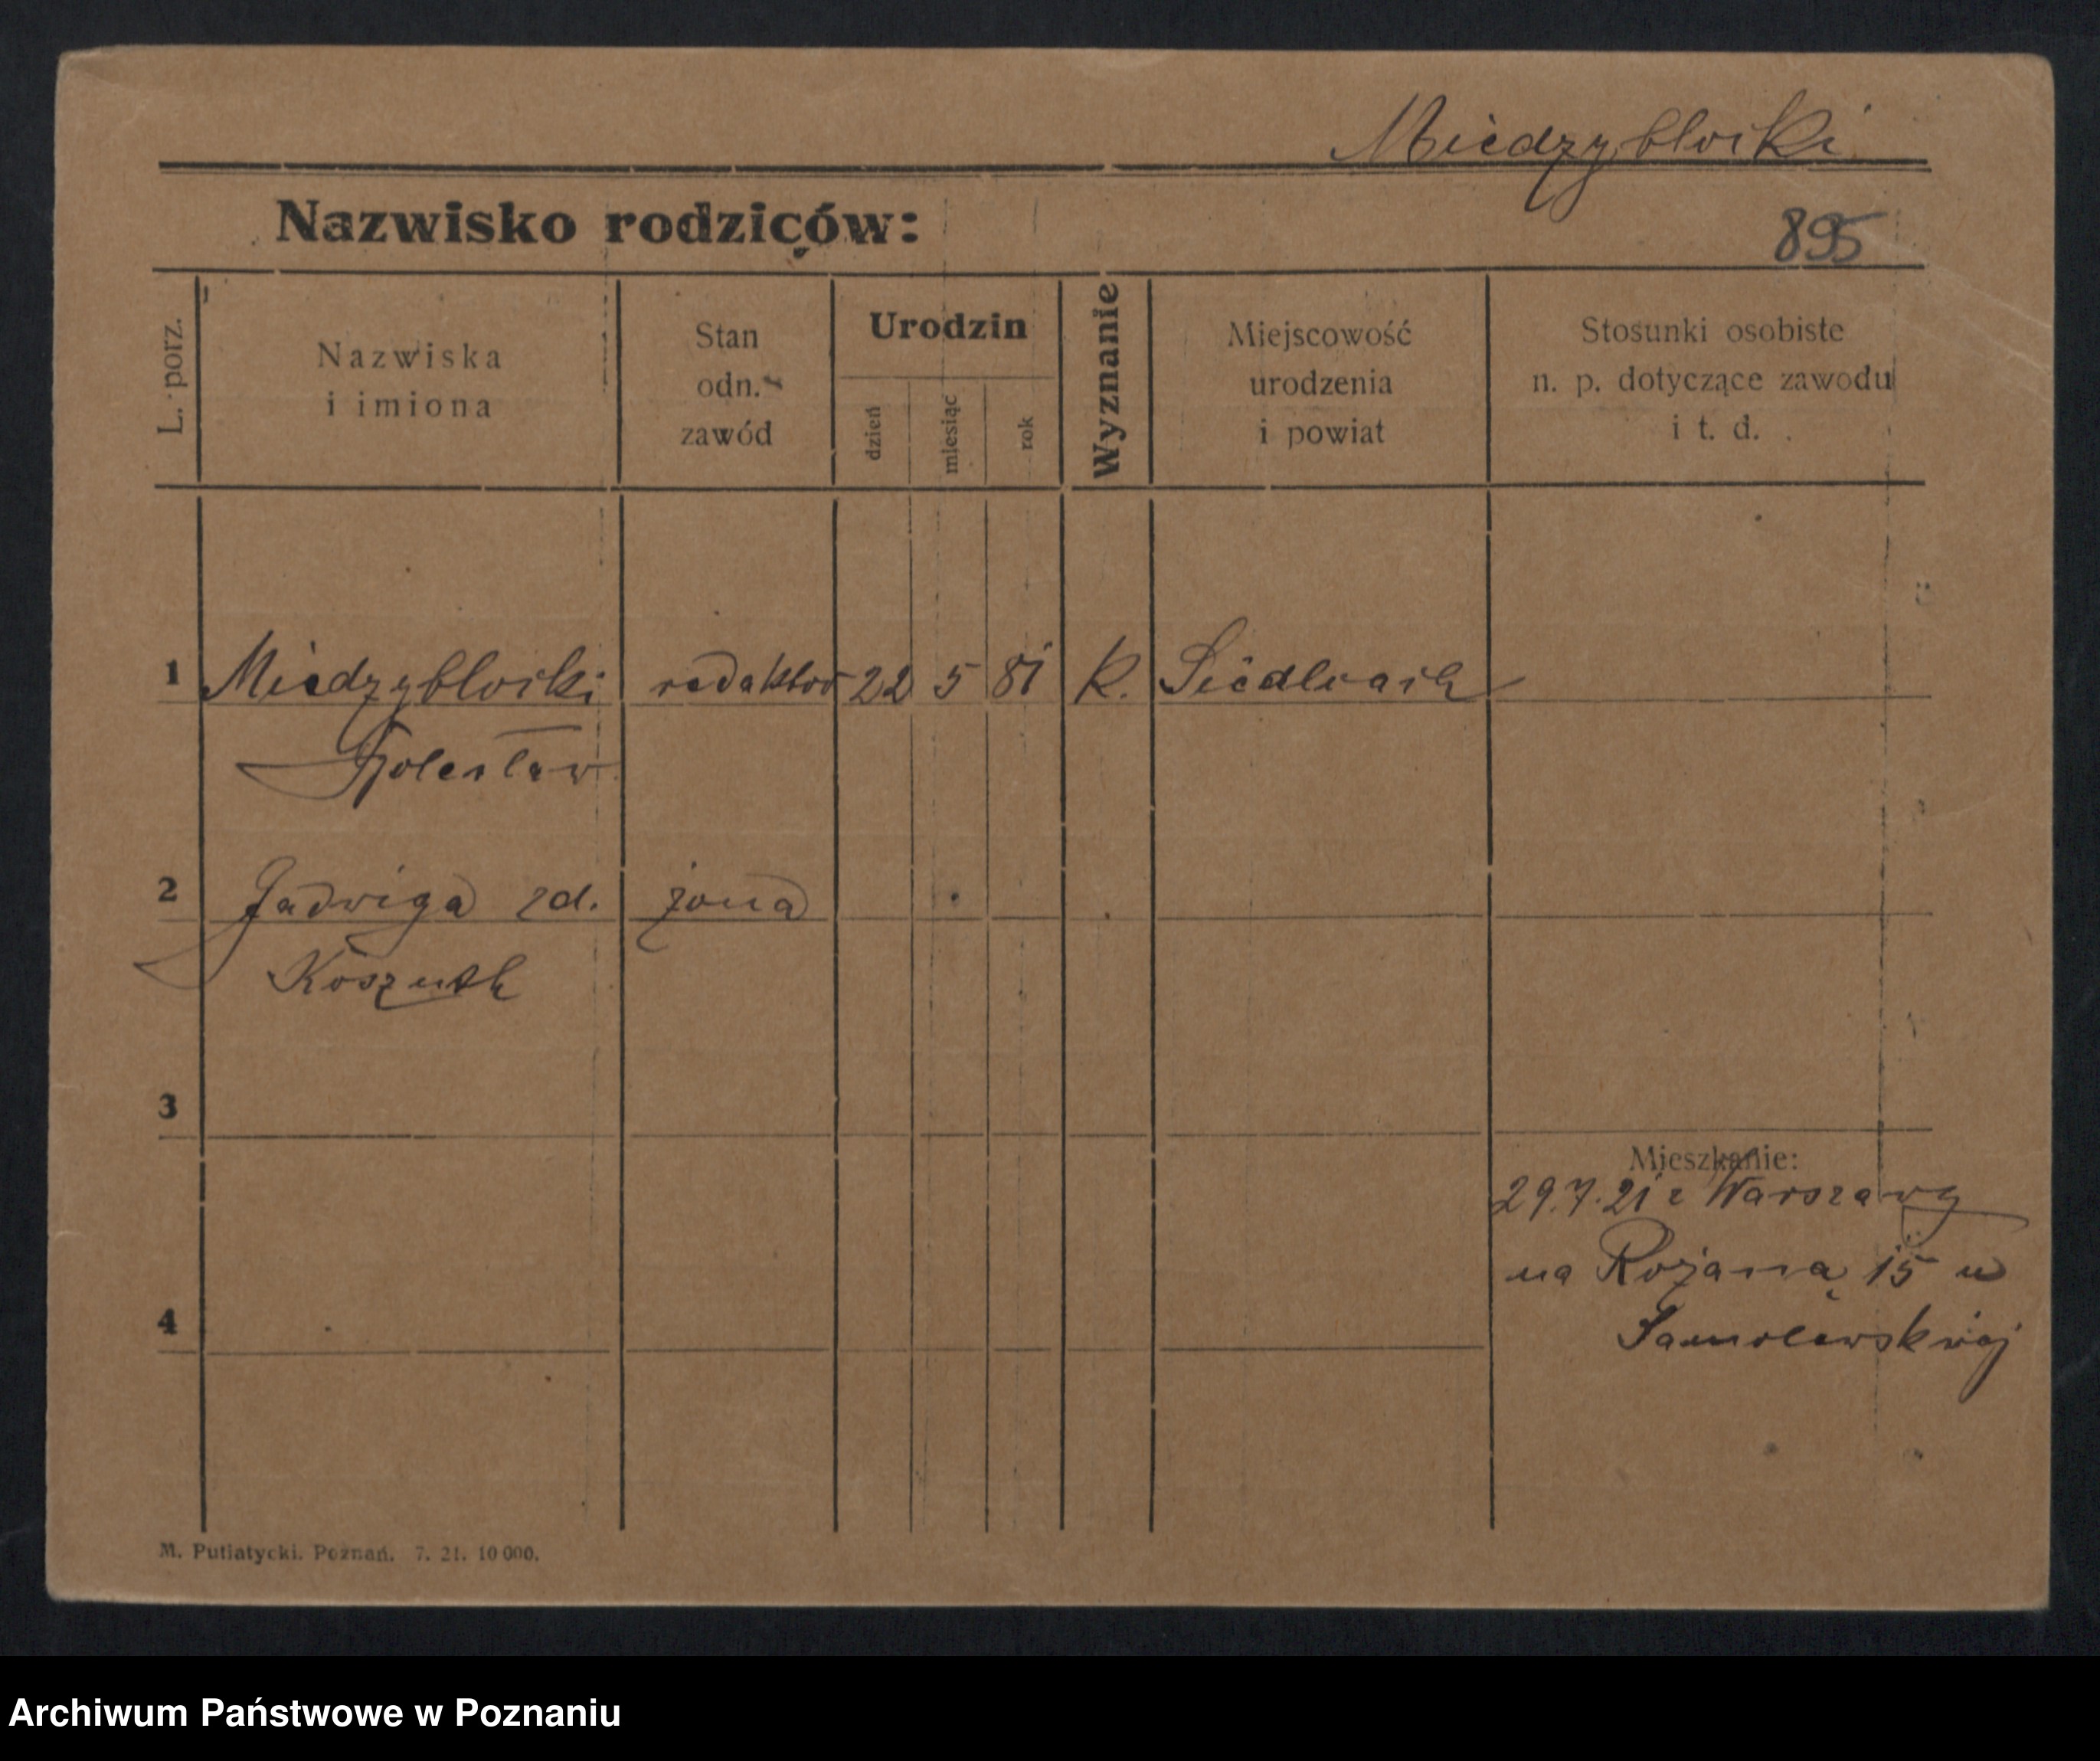 Miedzyblocki
Nazwisko rodziców:
895
L. porz.
Nazwiska
i imiona
Stan
odn.
zawód
Urodzin
dzień
miesiąc
rok
Wyznanie
Miejscowość
urodzenia
i powiat
Stosunki osobiste
n. p. dotyczące zawodu
i t. d.
1 Miedzyblocki redaktor 22 5 81 K.
Bolesław
2 Jadwiga zd. żona
Koszuth
3
Mieszkanie:
29.7.21 z Warszawy
na Rożaną 15 u
4
M. Putiatycki. Poznań. 7. 21. 10 000.
Archiwum Państwowe w Poznaniu